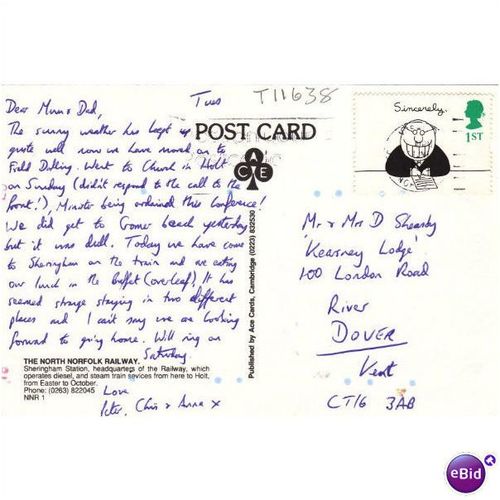 Tues
T11638
Dear Mum & Dad,
The sunny weather has kept up
quite well now we have moved on to
Field Dalling. Went to Church in Holt
on Sunday (didn't respond to the call to the
front!), Minister being ordained this Conference!
We did get to Cromer beach yesterday
but it was dull. Today we have come
to Sheringham on the train and are eating
our lunch in the buffet (overleaf). It has
seemed strange staying in two different
places and I can't say we are looking
forward to going home. Will ring on
Saturday.
Love
Peter, Chris & Anna x
POST CARD
ACE
THE NORTH NORFOLK RAILWAY.
Sheringham Station, headquarters of the Railway, which
operates diesel, and steam train sevices from here to Holt,
from Easter to October.
Phone: (0263) 822045
NNR 1
Published by Ace Cards, Cambridge (0223) 832530
Sincerely,
1ST
Mr & Mrs D
'Kearsney Lodge'
100 London Road
River
DOVER
Kent
CT16 3AB
eBid